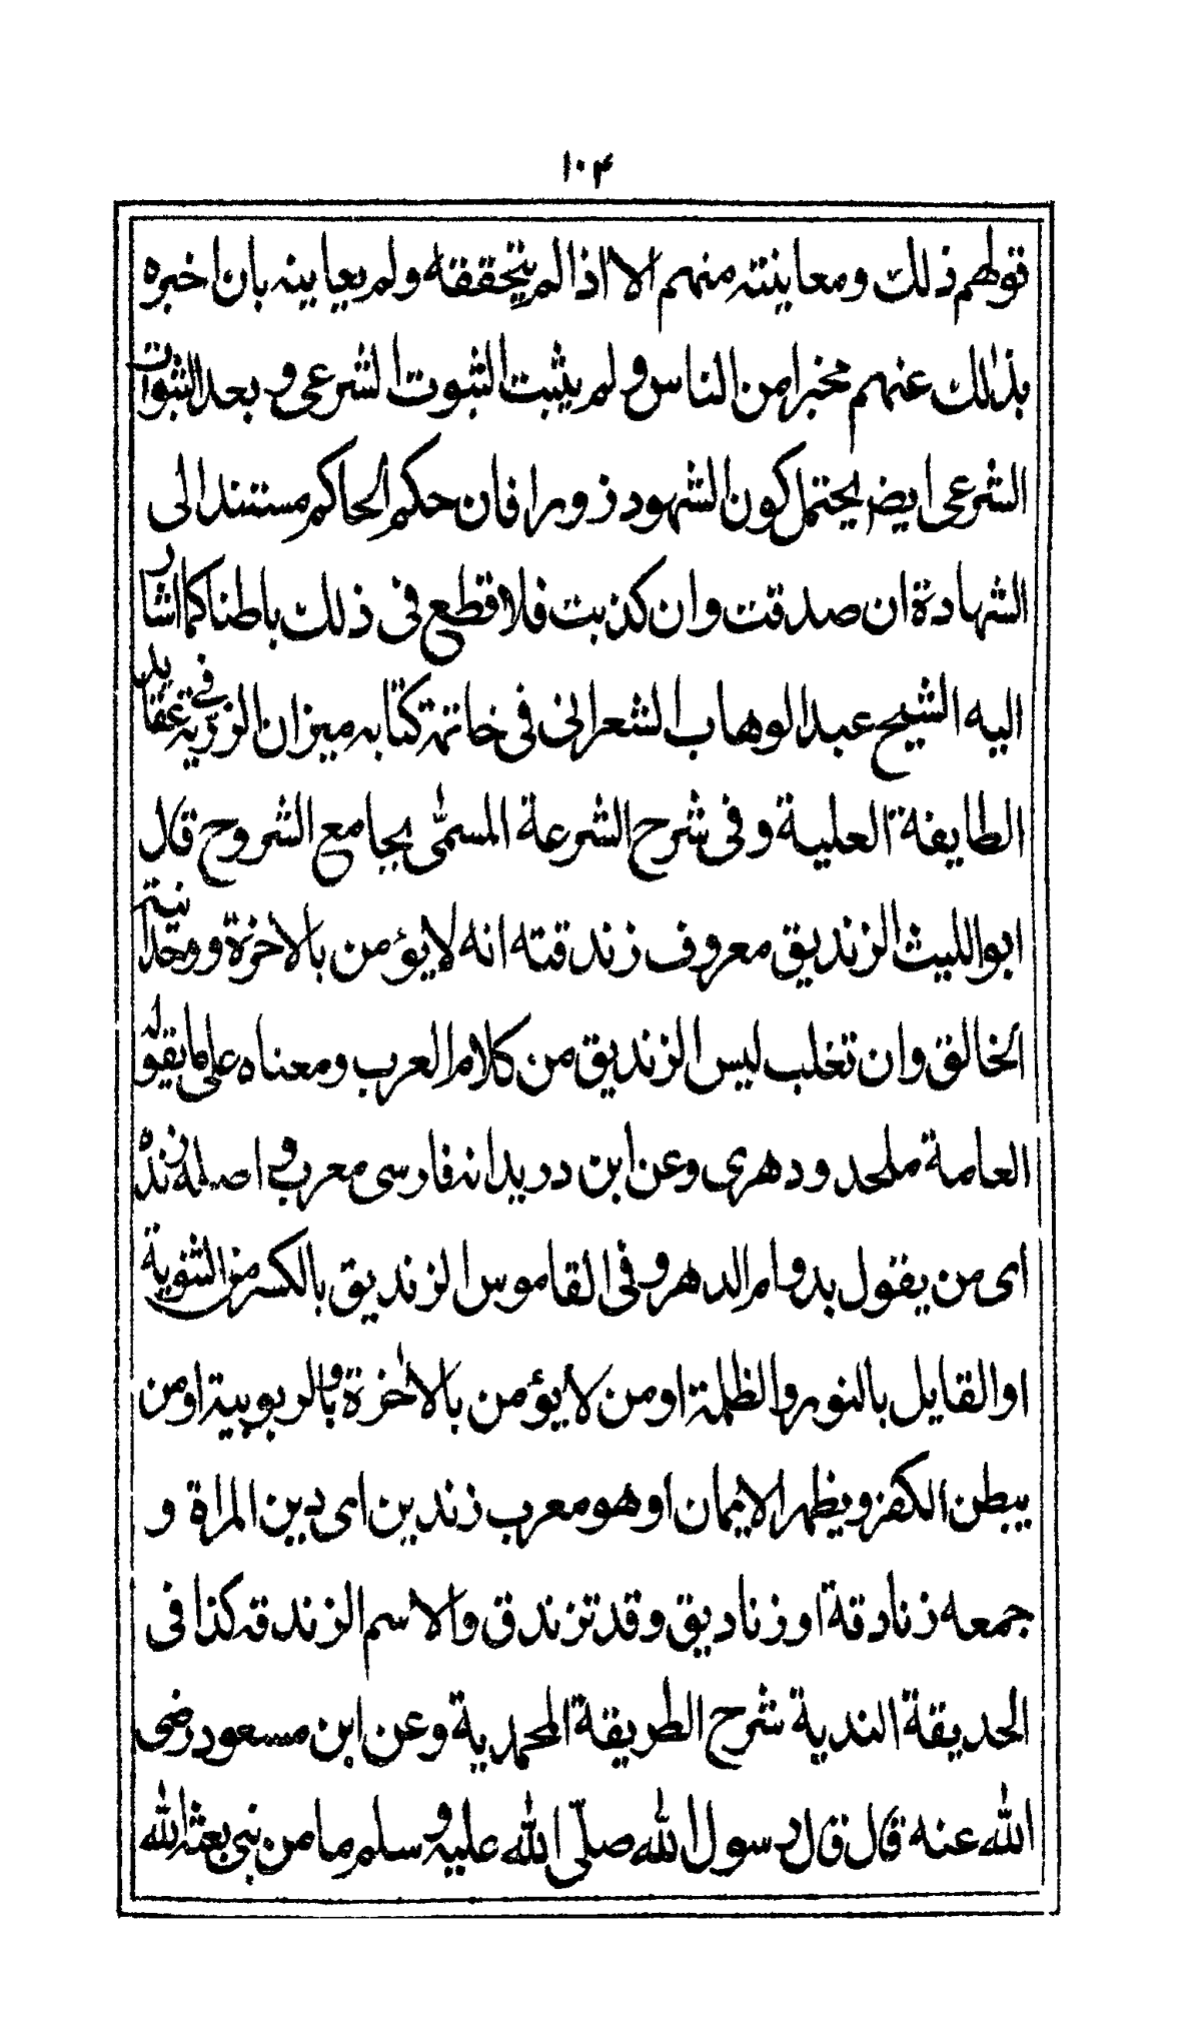 ١٠٤
قولهم ذلك ومعاينته منهم الا اذا لم يتحققه ولم يعاينه بان اخبره
بذلك عنهم مخبرا من الناس ولم يثبت الثبوت الشرعى وبعد الثبوت
الشرعى ايض يحتمل كون الشهود زورا فان حكم الحاكم مستندا الى
الشهادة ان صدقت وان كذبت فلا قطع فى ذلك باطنا كما اشار
اليه الشيخ عبد الوهاب الشعرانى فى خاتمة كتابه ميزان الزرية فى عقايد
الطايفة العلية وفى شرح الشرعة المسمّى بجامع الشروح قال
ابو الليث الزنديق معروف زندقته انه لا يؤمن بالاخرة ووحدانية
الخالق وان تغلب ليس الزنديق من كلام العرب ومعناه على ما يقوله
العامة ملحد ودهرى وعن ابن دريد انه فارسى معرب واصله زنده
اى من يقول بدوام الدهر وفى القاموس الزنديق بالكسر من الثنوية
او القايل بالنور والظلمة او من لا يؤمن بالاخرة وبالربوبية او من
يبطن الكفر ويظهر الايمان او هو معرب زندين اى دين المراة و
جمعه زنادقة او زناديق وقد تزندق والاسم الزندقه كذا فى
الحديقة الندية شرح الطريقة المحمدية وعن ابن مسعود رضى
الله عنه قال قال رسول الله صلّى الله عليه وسلم ما من نبى بعثه الله